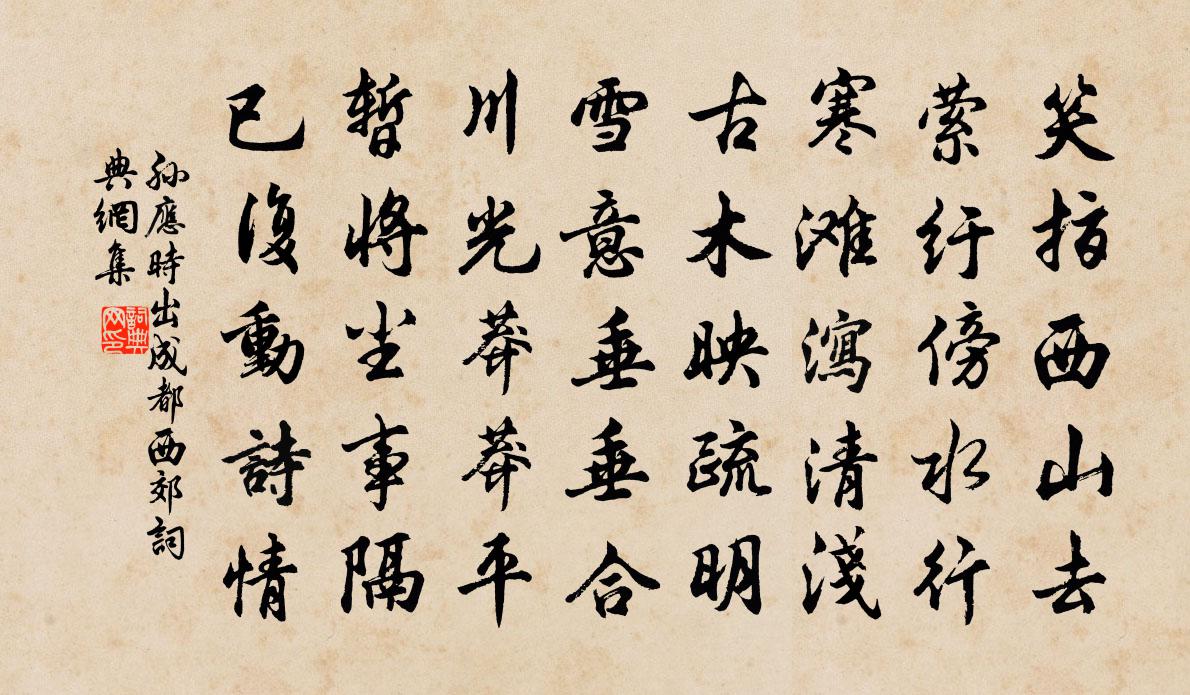 笑指西山去
萦纡傍水行
寒滩瀉清淺
古木映疏明
雪意垂垂合
川光莽莽平
暫將尘事隔
已復動詩情
孙應時出成都西郊詞
典網集
詞典
网印